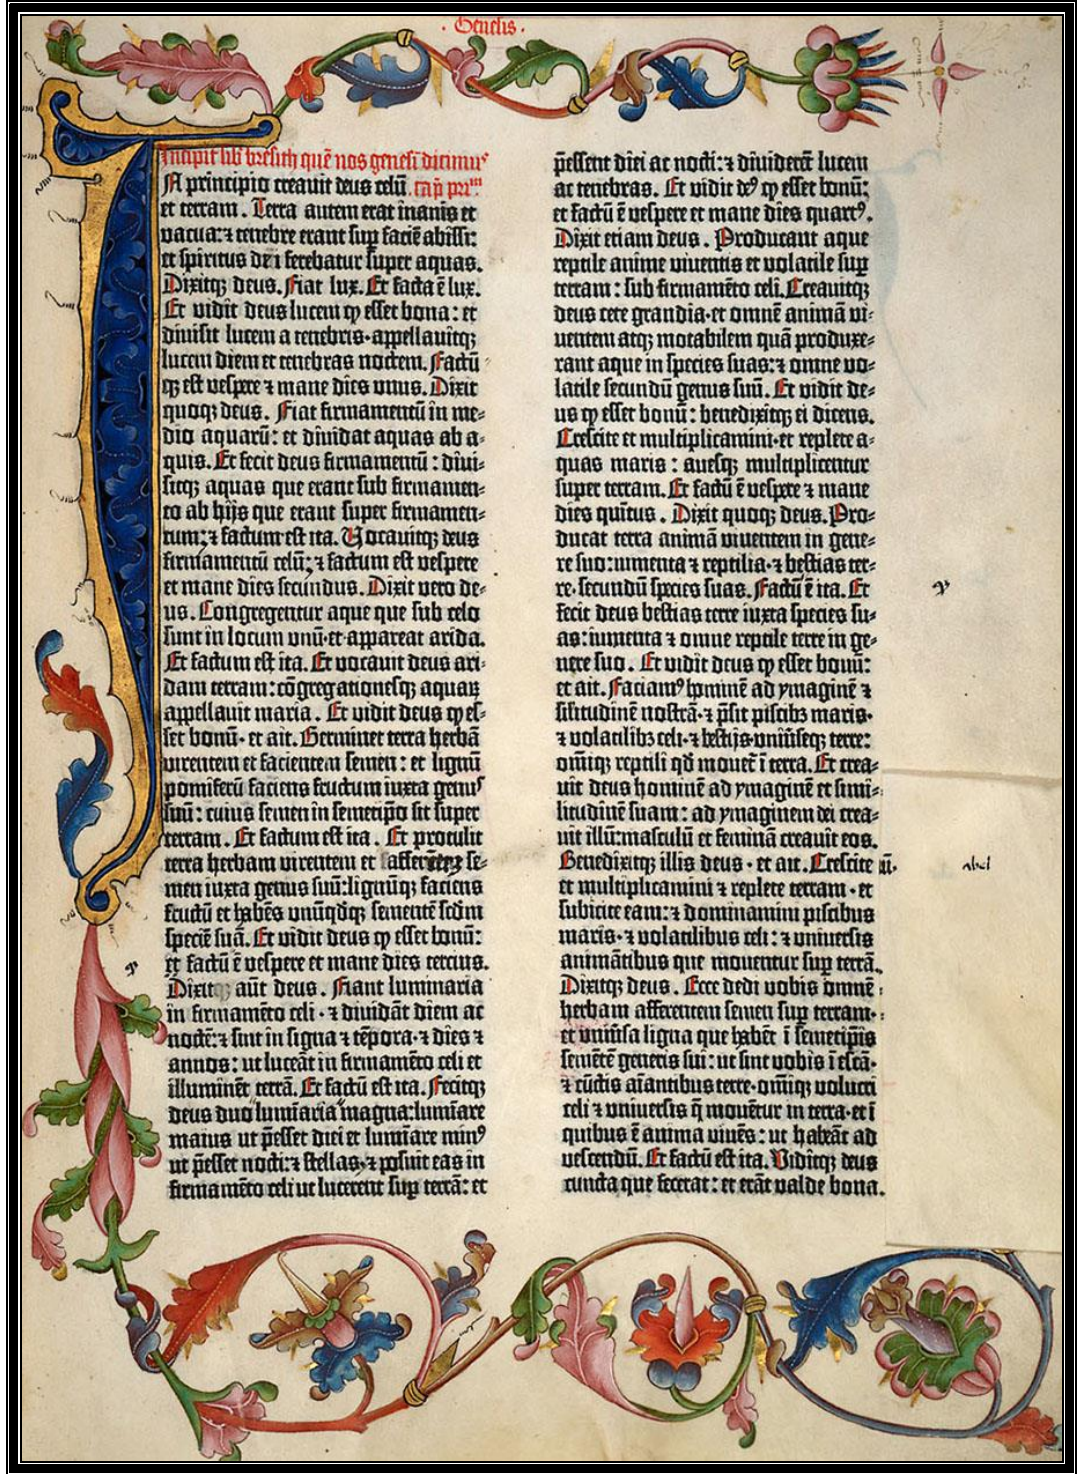 · Genesis ·
Incipit lib̄ bresith quē nos genesi dicimꝰ
IN principio creavit deus celū cap̄ prīm
et terram. Terra autem erat inanis et
vacua: ⁊ tenebre erant sup̱ faciē abissi:
et spiritus dei ferebatur super aquas.
Dixitqꝫ deus. Fiat lux. Et facta ē lux.
Et vidit deus lucem ꝙ esset bona: et
divisit lucem a tenebris · appellavitqꝫ
lucem diem et tenebras noctem. Factū
qꝫ est vespere ⁊ mane dies unus. Dixit
quoqꝫ deus. Fiat firmamentū in me⸗
dio aquarū: et dividat aquas ab a⸗
quis. Et fecit deus firmamentū: divi⸗
sitqꝫ aquas que erant sub firmamen⸗
to ab hijs que erant super firmamen⸗
tum: ⁊ factum est ita. Vocavitqꝫ deus
firmamentū celū: ⁊ factum est vespere
et mane dies secundus. Dixit vero de⸗
us. Congregentur aque que sub celo
sunt in locum unū · et appareat arida.
Et factum est ita. Et vocavit deus ari⸗
dam terram: cōgregationesqꝫ aquaꝝ
appellavit maria. Et vidit deus ꝙ es⸗
set bonū · et ait. Germinet terra herbā
virentem et facientem semen: et lignū
pomiferū faciens fructum iuxta genꝰ
suū: cuius semen in semetip̄o sit super
terram. Et factum est ita. Et protulit
terra herbam virentem et afferētem se⸗
men iuxta genus suū: lignūqꝫ faciens
fructū et habēs unūqdqꝫ sementē scdm
speciē suā. Et vidit deus ꝙ esset bonū:
et factū ē vespere et mane dies tercius.
Dixit aūt deus. Fiant luminaria
in firmamēto celi · ⁊ dividāt diem ac
noctē: ⁊ sint in signa ⁊ tēpora · ⁊ dies ⁊
annos: ut luceāt in firmamēto celi et
illuminēt terrā. Et factū est ita. Fecitqꝫ
deus duo lumīaria magna: lumīare
maius ut p̄esset diei et lumīare minꝰ
ut p̄esset nocti: ⁊ stellas · ⁊ posuit eas in
firmamēto celi ut lucerent sup̱ terrā: et
p̄essent diei ac nocti: ⁊ dividerēt lucem
ac tenebras. Et vidit deꝰ ꝙ esset bonū:
et factū ē vespere et mane dies quartꝰ.
Dixit etiam deus. Producant aque
reptile anime viventis et volatile sup̱
terram: sub firmamēto celi. Creavitqꝫ
deus cete grandia · et omnē animā vi⸗
ventem atqꝫ motabilem quā produxe⸗
rant aque in species suas: ⁊ omne vo⸗
latile secundū genus suū. Et vidit de⸗
us ꝙ esset bonū: benedixitqꝫ ei dicens.
Crescite et multiplicamini · et replete a⸗
quas maris: avesqꝫ multiplicentur
super terram. Et factū ē vespere ⁊ mane
dies quītus. Dixit quoqꝫ deus. Pro⸗
ducat terra animā viventem in gene⸗
re suo: iumenta ⁊ reptilia · ⁊ bestias ter⸗
re · secundū species suas. Factū ē ita. Et
fecit deus bestias terre iuxta species su⸗
as: iumenta ⁊ omne reptile terre in ge⸗
nere suo. Et vidit deus ꝙ esset bonū:
et ait. Faciamꝰ hominē ad ymaginē ⁊
silitudinē nostrā · ⁊ p̄sit piscibꝫ maris ·
⁊ volatilibꝫ celi · ⁊ bestijs · univ̄seqꝫ terre:
om̄iqꝫ reptili qd movet ī terra. Et crea⸗
vit deus hominē ad ymaginē et simi⸗
litudinē suam: ad ymaginem dei crea⸗
vit illū: masculū et feminā creavit eos.
Benedixitqꝫ illis deus · et ait. Crescite
abel
et multiplicamini ⁊ replete terram · et
subicite eam: ⁊ dominamini piscibus
maris · ⁊ volatilibus celi: ⁊ universis
animātibus que moventur sup̱ terrā.
Dixitqꝫ deus. Ecce dedi vobis omnē
herbam afferentem semen sup̱ terram ·
et univ̄sa ligna que habēt ī semetip̄is
semētē generis sui: ut sint vobis ī escā ·
⁊ cūctis aīantibus terre · om̄iqꝫ volucri
celi ⁊ universis q̄ movētur in terra · et ī
quibus ē anima vivēs: ut habeāt ad
vescendū. Et factū est ita. Viditqꝫ deus
cuncta que fecerat: et erāt valde bona.